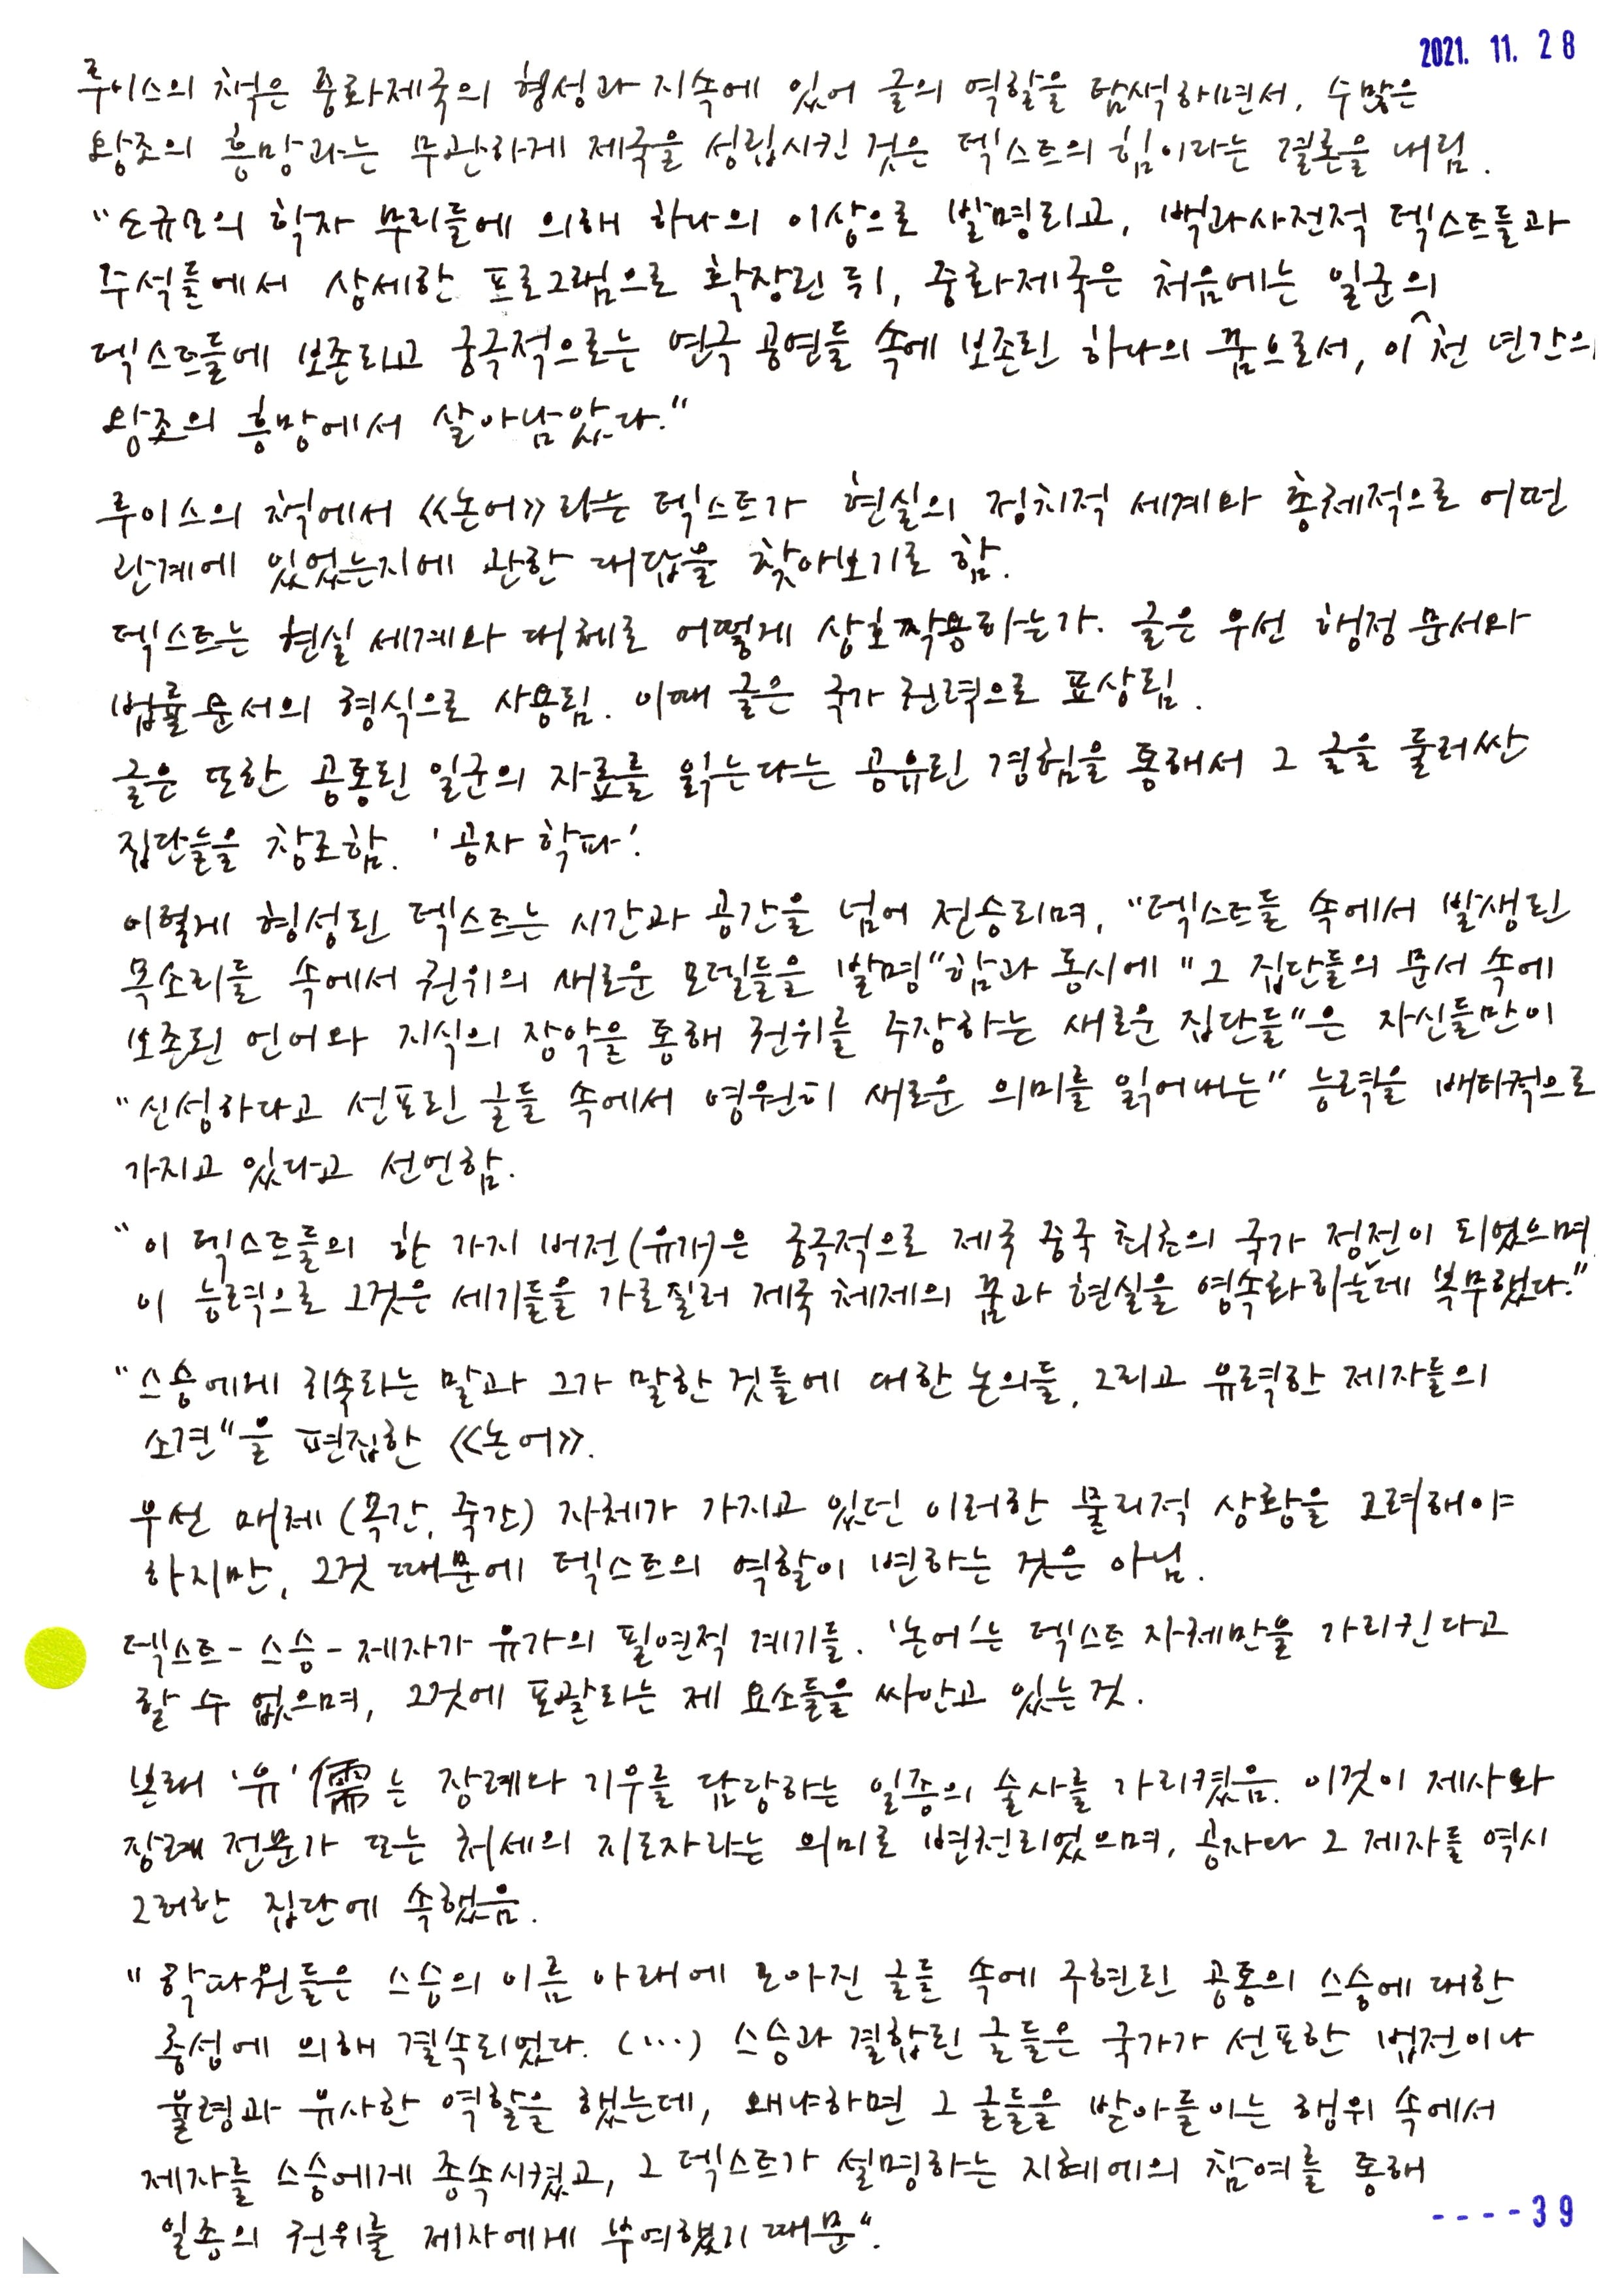 2021. 11. 28
루이스의 책은 중화제국의 형성과 지속에 있어 글의 역할을 탐색하면서, 수많은
왕조의 흥망과는 무관하게 제국을 성립시킨 것은 텍스트의 힘이라는 결론을 내림.
"소규모의 학자 무리들에 의해 하나의 이상으로 발명되고, 백과사전적 텍스트들과
주석들에서 상세한 프로그램으로 확장된 뒤, 중화제국은 처음에는 일군의
텍스트들에 보존되고 궁극적으로는 연극 공연들 속에 보존된 하나의 꿈으로서, 이천 년간의
왕조의 흥망에서 살아남았다."
루이스의 책에서 《논어》라는 텍스트가 현실의 정치적 세계와 총체적으로 어떤
관계에 있었는지에 관한 대답을 찾아보기로 함.
텍스트는 현실 세계와 대체로 어떻게 상호작용하는가. 글은 우선 행정 문서와
법률 문서의 형식으로 사용됨. 이때 글은 국가 권력으로 표상됨.
글은 또한 공통된 일군의 자료를 읽는다는 공유된 경험을 통해서 그 글을 둘러싼
집단들을 창조함. '공자 학파'.
이렇게 형성된 텍스트는 시간과 공간을 넘어 전승되며, "텍스트들 속에서 발생된
목소리들 속에서 권위의 새로운 모델들을 발명"함과 동시에 "그 집단들의 문서 속에
보존된 언어와 지식의 장악을 통해 권위를 주장하는 새로운 집단들"은 자신들만이
"신성하다고 선포된 글들 속에서 영원히 새로운 의미를 읽어내는" 능력을 배타적으로
가지고 있다고 선언함.
"이 텍스트들의 한 가지 버전(유가)은 궁극적으로 제국 중국 최초의 국가 정전이 되었으며
이 능력으로 그것은 세기들을 가로질러 제국 체제의 꿈과 현실을 영속화하는데 복무했다."
"스승에게 귀속되는 말과 그가 말한 것들에 대한 논의들, 그리고 유력한 제자들의
소견"을 편집한 《논어》.
우선 매체(목간, 죽간) 자체가 가지고 있던 이러한 물리적 상황을 고려해야
하지만, 그것 때문에 텍스트의 역할이 변하는 것은 아님.
텍스트-스승-제자가 유가의 필연적 계기들. '논어'는 텍스트 자체만을 가리킨다고
할 수 없으며, 그것에 포괄되는 제 요소들을 싸안고 있는 것.
본래 '유'儒는 장례나 기우를 담당하는 일종의 술사를 가리켰음. 이것이 제사와
장례 전문가 또는 처세의 지도자라는 의미로 변천되었으며, 공자나 그 제자들 역시
그러한 집단에 속했음.
"학파원들은 스승의 이름 아래에 모아진 글들 속에 구현된 공통의 스승에 대한
충성에 의해 결속되었다. (…) 스승과 결합된 글들은 국가가 선포한 법전이나
율령과 유사한 역할을 했는데, 왜냐하면 그 글들을 받아들이는 행위 속에서
제자를 스승에게 종속시켰고, 그 텍스트가 설명하는 지혜에의 참여를 통해
일종의 권위를 제자에게 부여했기 때문".
----39